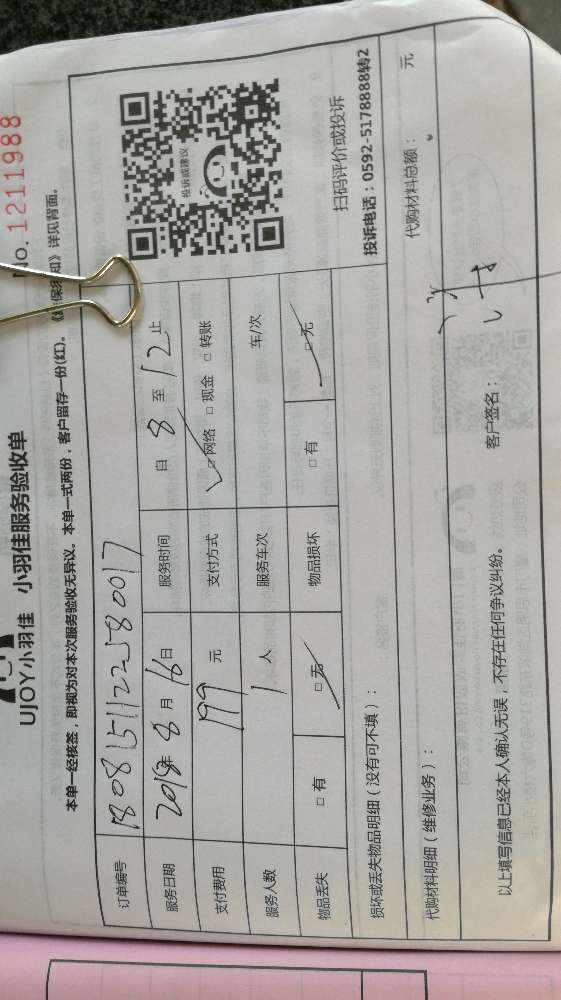 No. 1211988
UJOY小羽佳 小羽佳服务验收单
本单一经核签，即视为对本次服务验收无异议。本单一式两份，客户留存一份(红)。《 保 知》详见背面。
订单编号 180815112258 0017
服务日期 2018年 8 月 16日 服务时间 自 8 至 12 止
支付费用 199 元 支付方式 ☑网络 □现金 □转账
服务人数 1 人 服务车次 车/次
物品丢失 □有 ☑无 物品损坏 □有 ☑无
投诉或建议
扫码评价或投诉
投诉电话：0592-5178888转2
损坏或丢失物品明细（没有可不填）：
代购材料明细（维修业务）： 代购材料总额： 元
以上填写信息已经本人确认无误，不存在任何争议纠纷。 客户签名：